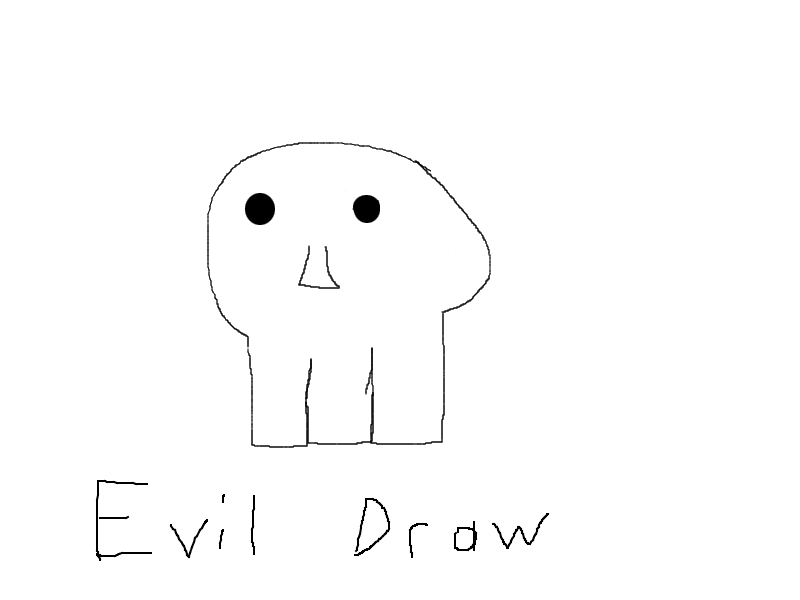 Evil Draw